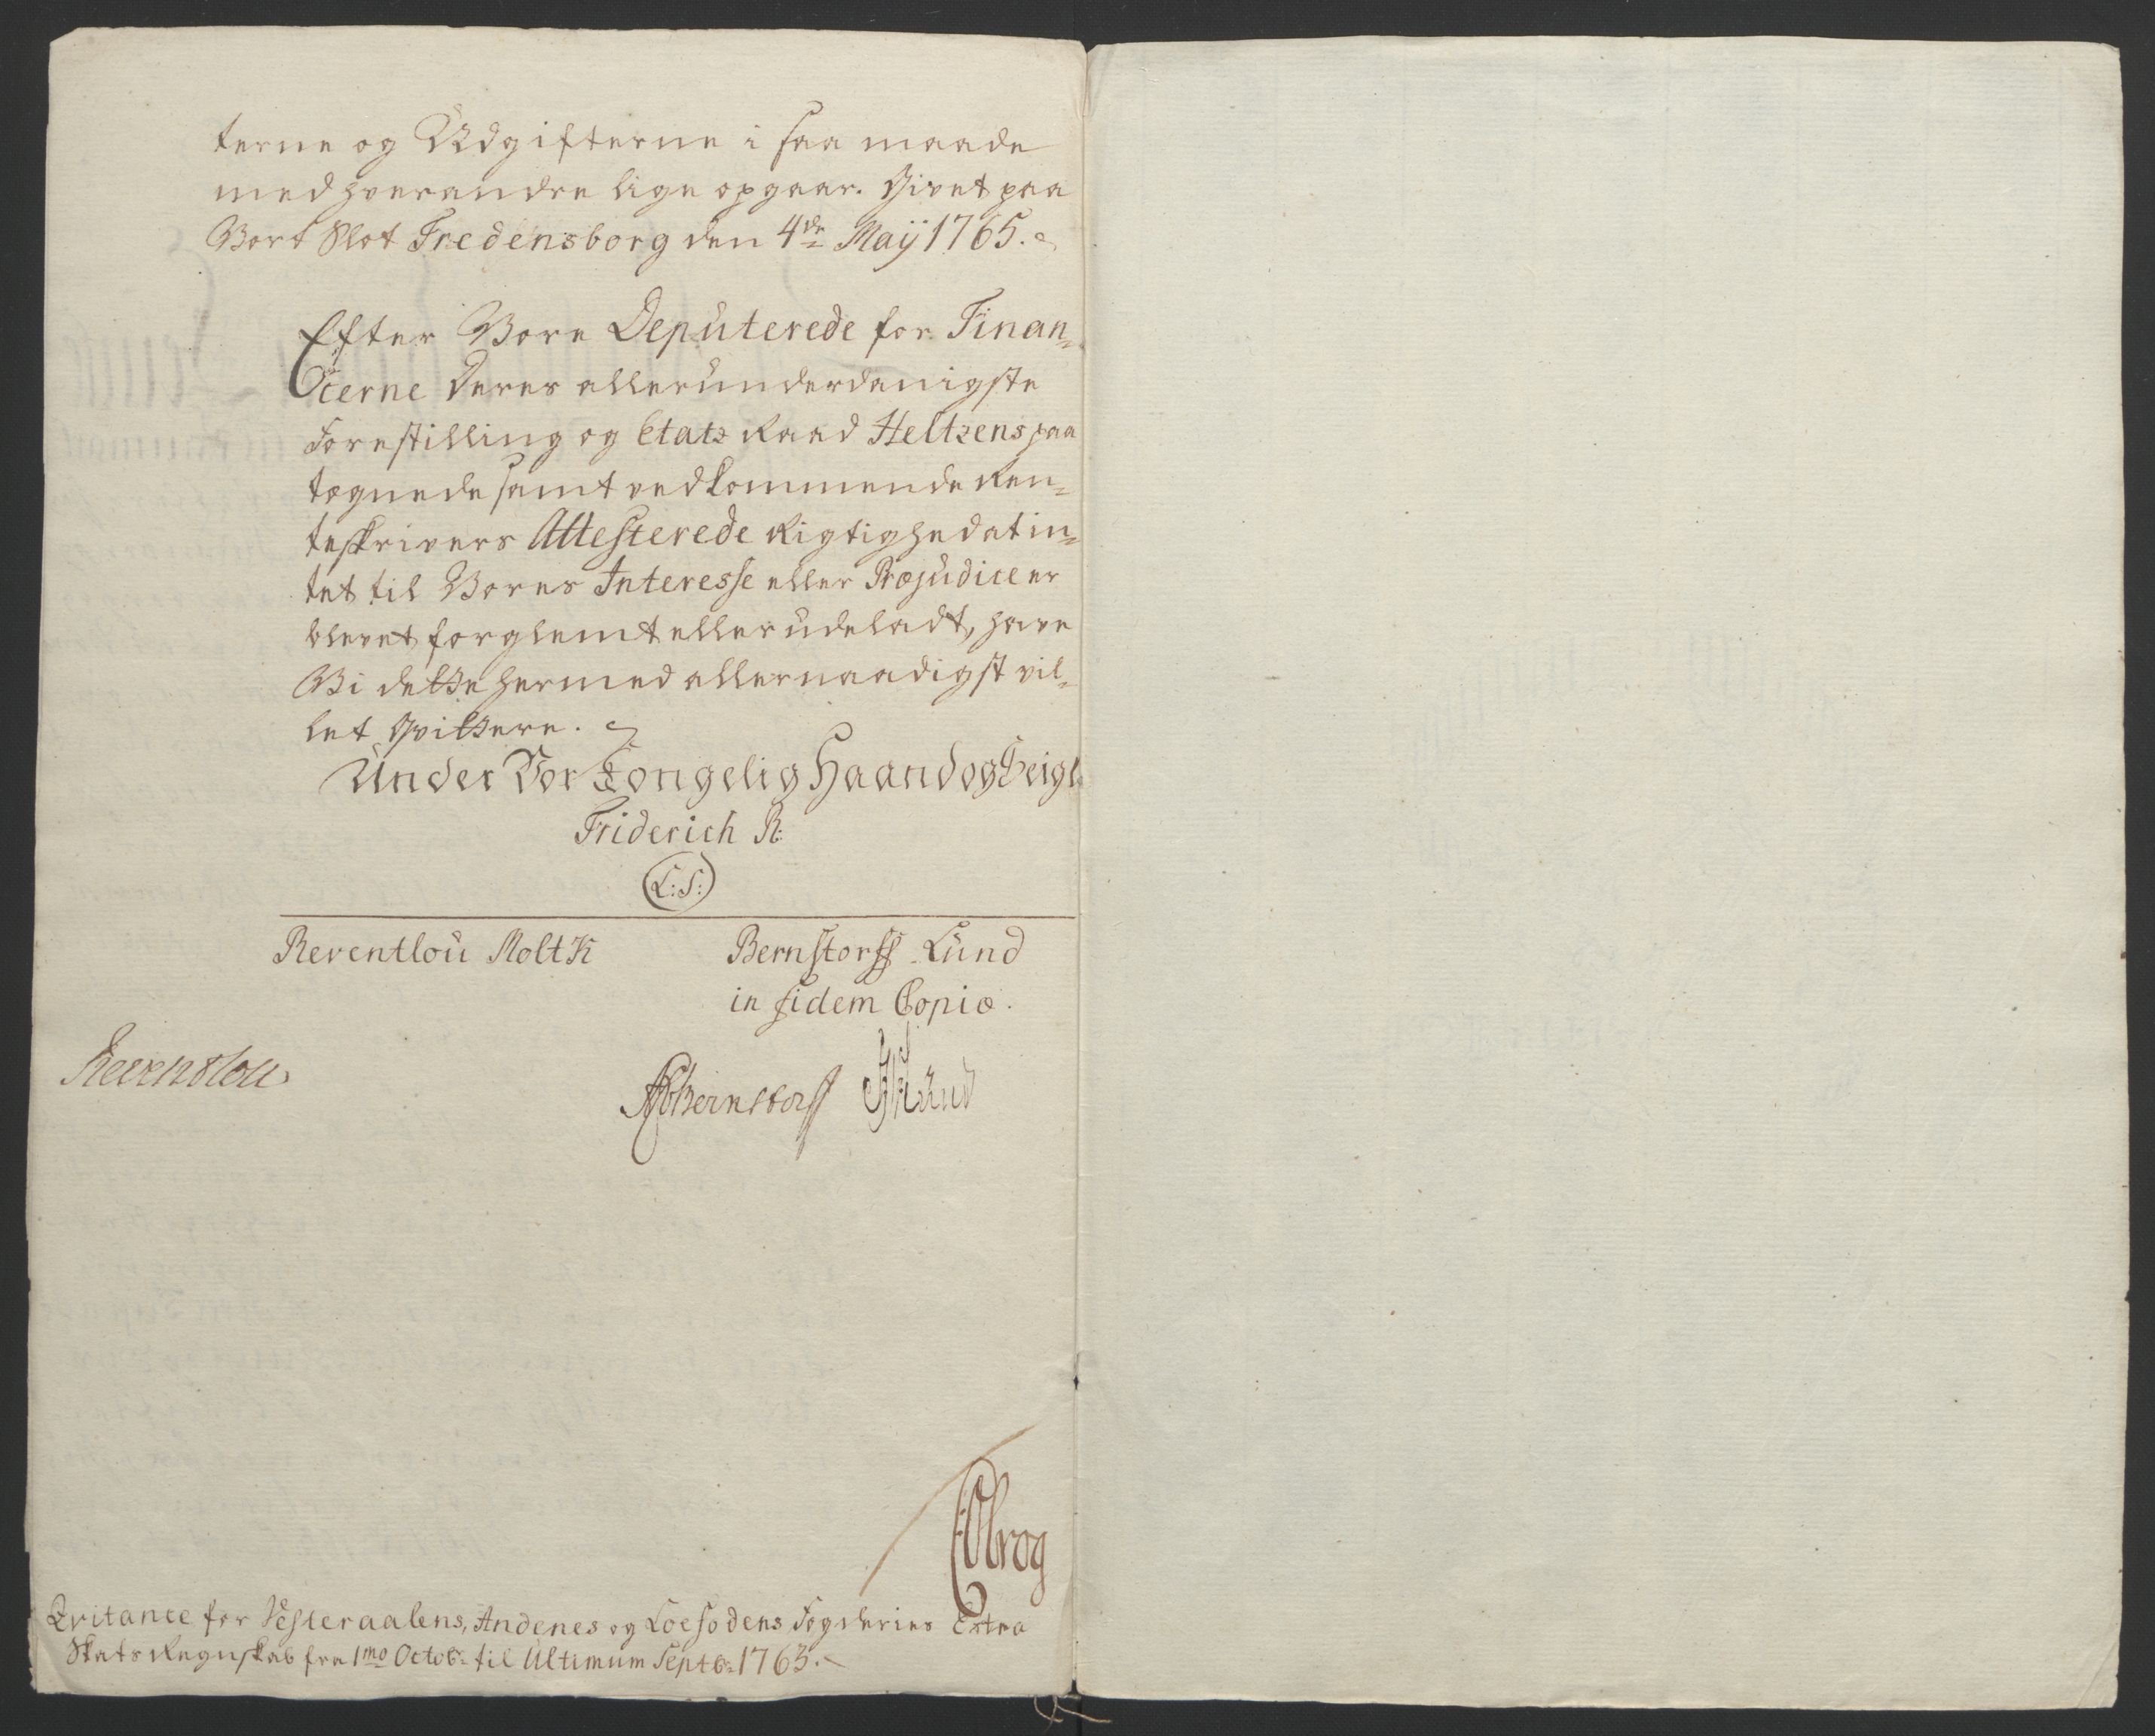 terne og Udgifterne i saa maade
med hverandre lige opgaar. Givet paa
Vort Slot Fredensborg den 4de Maÿ 1765.
Efter Vore Deputerede for Finan-
cerne Deres allerunderdanigste
Forestilling og Etats Raad Heltzens paa
tegnede samt vedkommende Ren-
teskrivers Attesterede Rigtighed at in-
tet til Vores Interesse eller Præjudice er
blevet forglemt eller udeladt, have
Vi dette hermed allernaadigst vil-
let Qvittere.
Under Vor Kongelig Haand og Seigl.
Friderich R:
(L:S:)
Reventlou Moltk Bernstorff Lund
in fidem Copiæ.
Reventlou
Bernstorff Lund
Qvitance for Vesteraalens, Andenes og Loefodens Fogderies Extra
Skats Regnskab fra 1mo Octobr: til Ultimum Septbr: 1763.